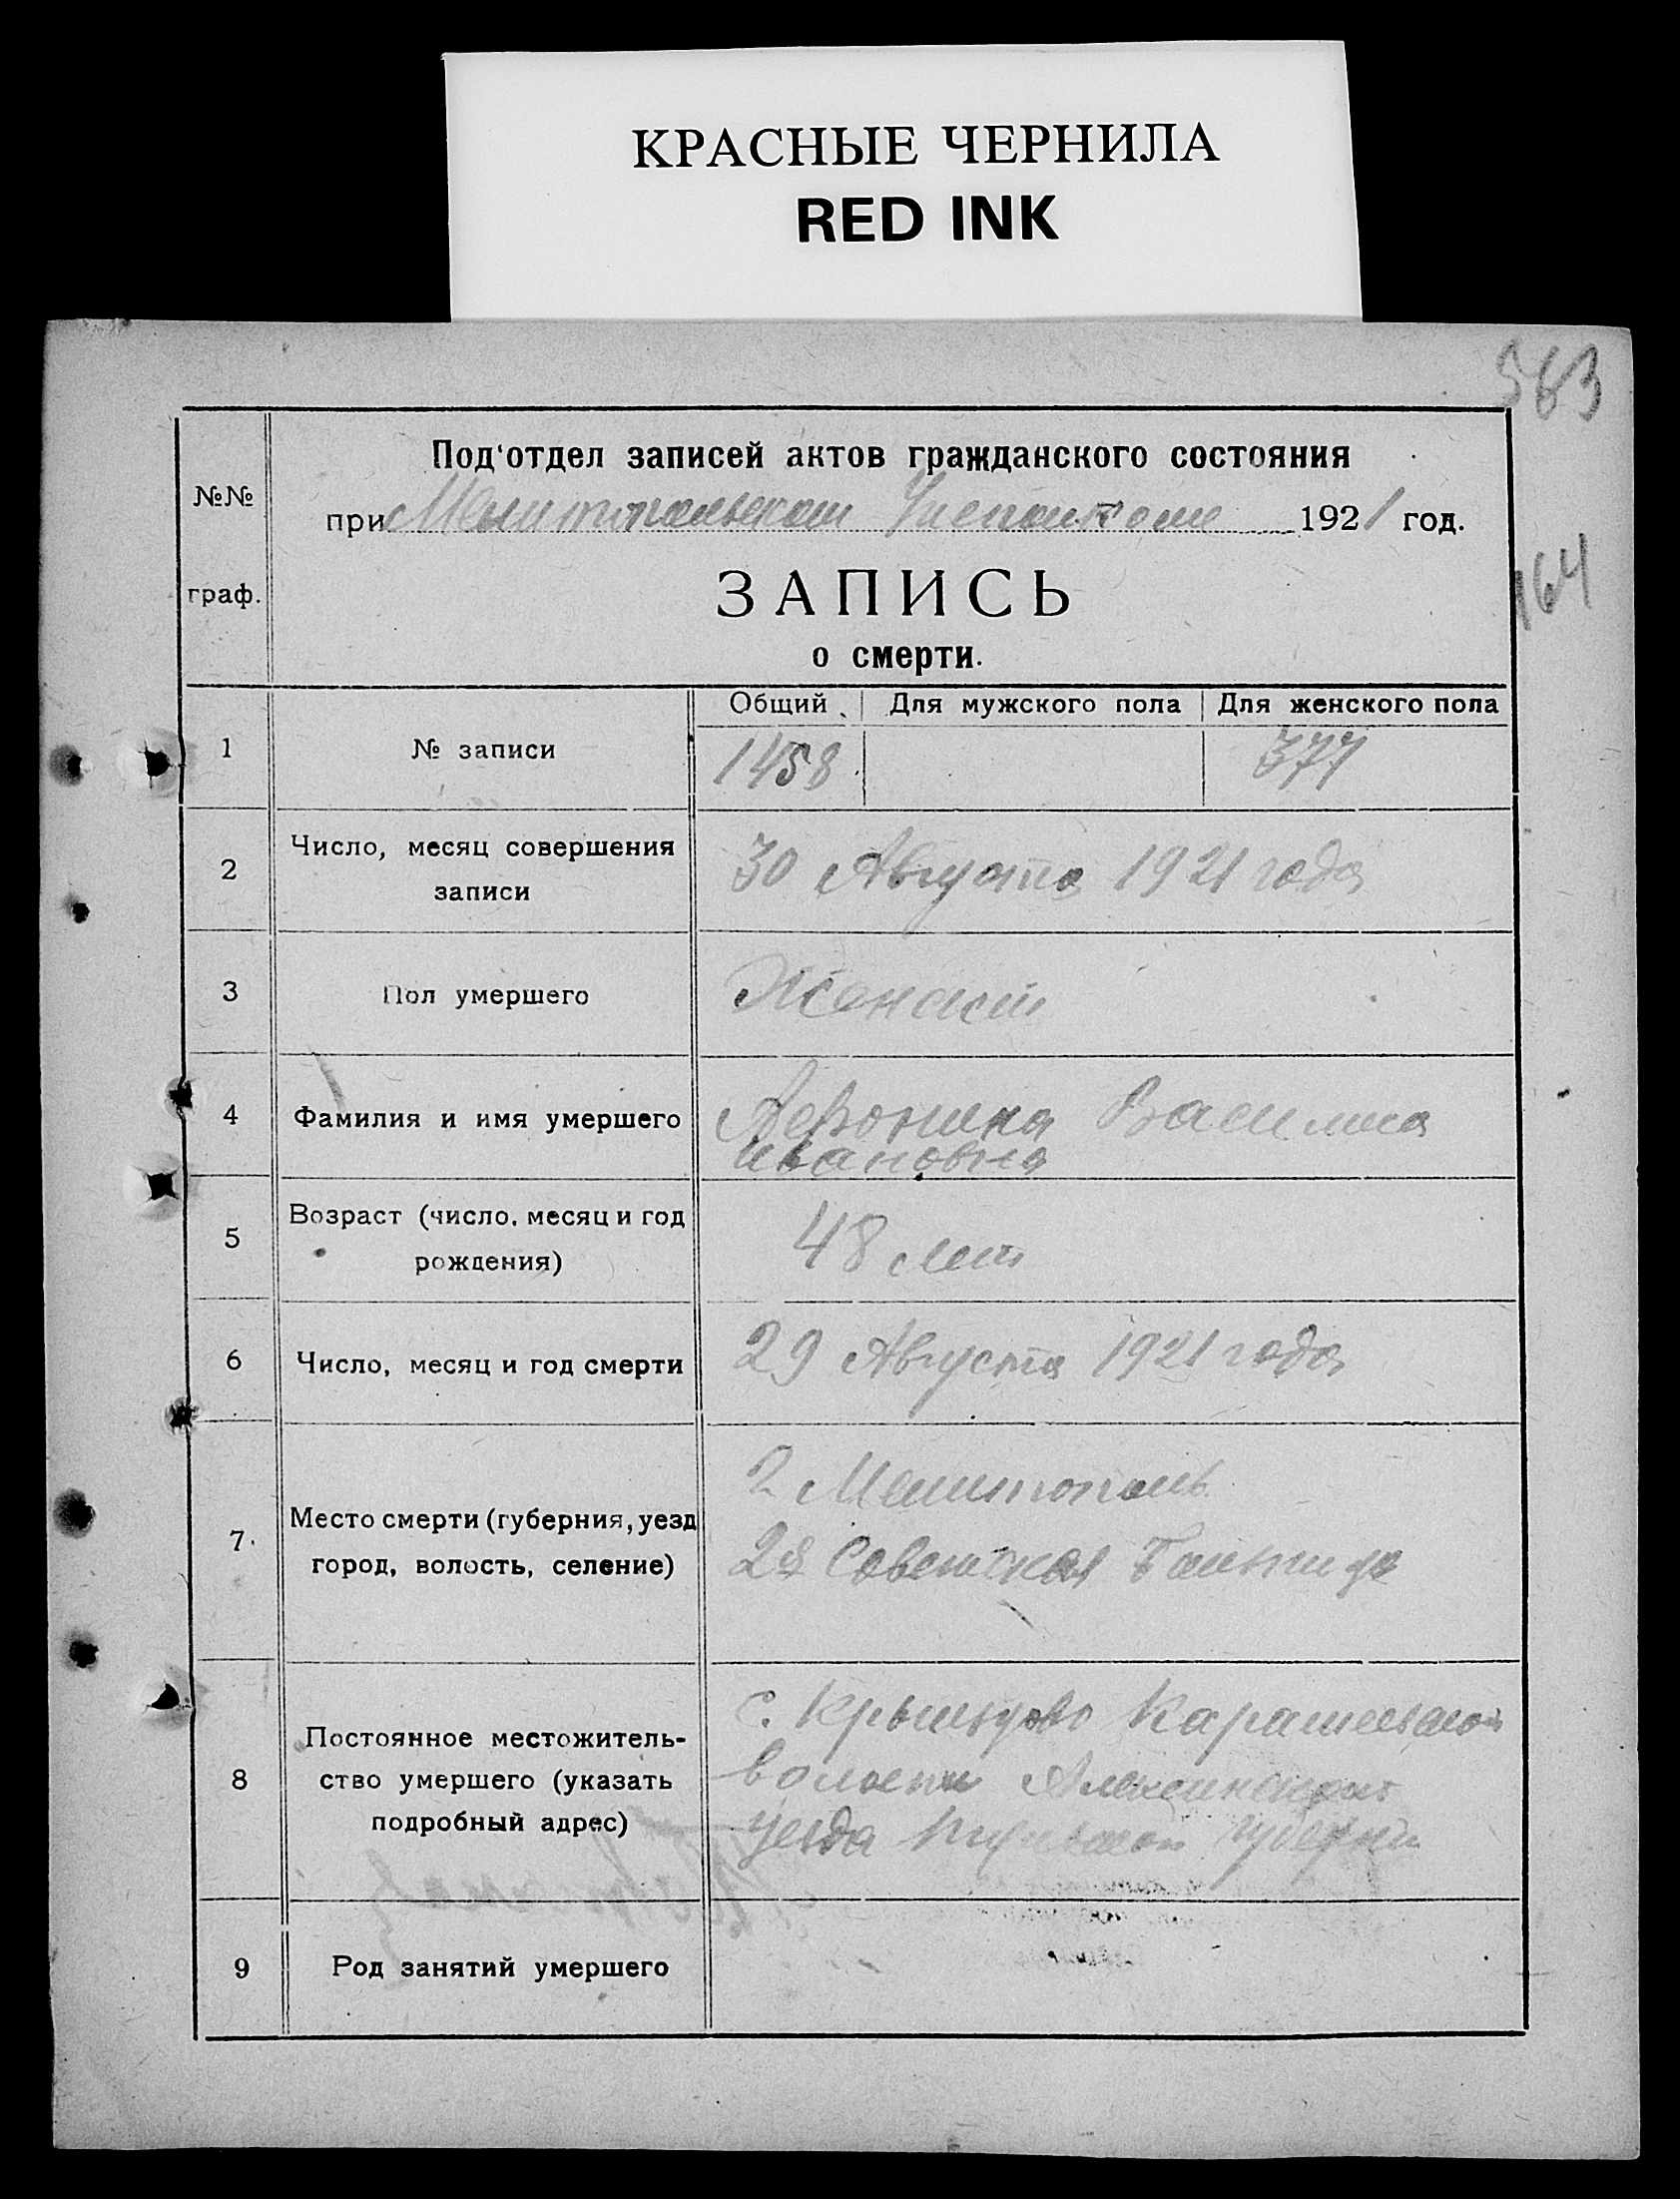 КРАСНЫЕ ЧЕРНИЛА
RED INK
563
Под'отдел записей актов гражданского состояния
№№
при 1921 год.
164
граф.
ЗАПИСЬ
о смерти.
Общий Для мужского пола Для женского пола
1 № записи 1458 377
2 Число, месяц совершения
записи
30 Августа 1921 года
3 Пол умершего
4 Фамилия и имя умершего
Ивановна
5 Возраст (число, месяц и год
рождения)
48 лет
6 Число, месяц и год смерти 29 Августа 1921 года
7. Место смерти (губерния, уезд
город, волость, селение)
Мелитополь
Советская
8 Постоянное местожитель-
ство умершего (указать
подробный адрес)
с.
волости
уезда губерни
9 Род занятий умершего